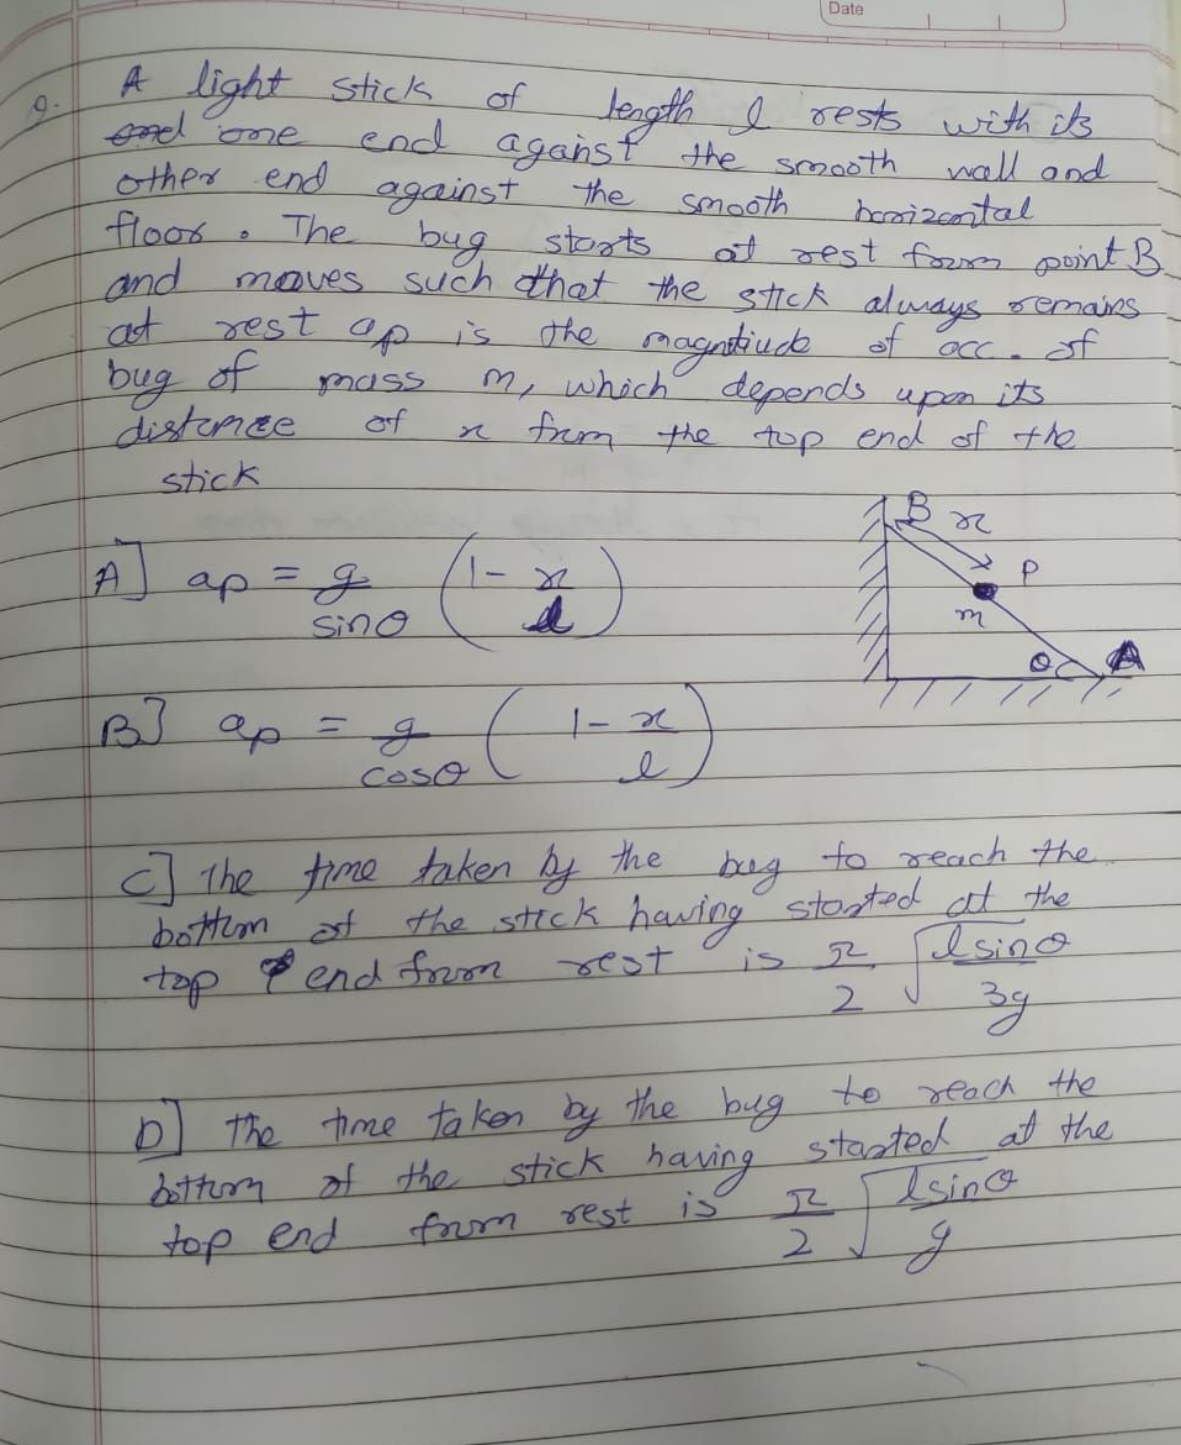 Date
9. A light stick of length l rests with its
one end against the smooth wall and
other end against the smooth horizontal
floor. The bug starts at rest form point B
and moves such that the stick always remains
at rest ap is the magnatiude of acc. of
bug of mass m, which depends upon its
distance of x from the top end of the
stick
B x
P
m
θ A
A] ap = g/sinθ (1 - x/l)
B] ap = g/cosθ (1 - x/l)
C] The time taken by the bug to reach the
bottom of the stick having started at the
top end from rest is π/2 √(lsinθ/3g)
D] The time taken by the bug to reach the
bottom of the stick having started at the
top end from rest is π/2 √(lsinθ/g)